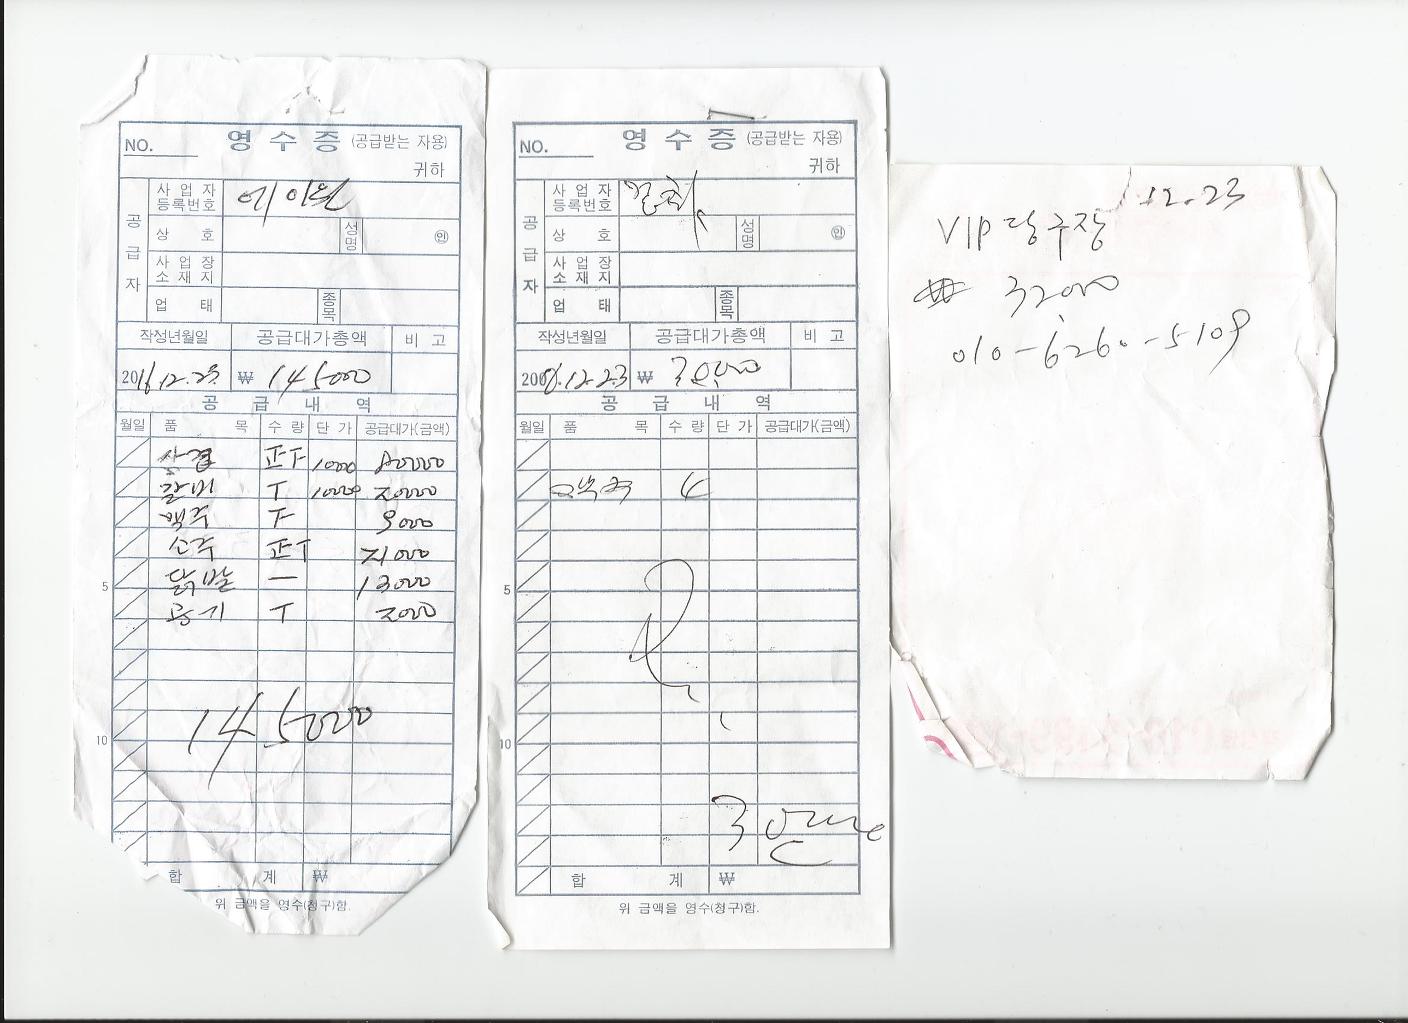 NO.
영 수 증 (공급받는 자용)
귀하
공급자
사업자등록번호 에이원
상 호
성명
인
사업장소재지
업 태
종목
작성년월일 공급대가총액 비 고
2016.12.23. ₩ 145000
공 급 내 역
월일 품 목 수 량 단 가 공급대가(금액)
삼겹 正T 1000 80000
갈비 T 10000 20000
맥주 F 9000
소주 正T 21000
5 닭발 一 13000
공기 T 2000
145000
10
합 계 ₩
위 금액을 영수(청구)함.
NO.
영 수 증 (공급받는 자용)
귀하
공급자
사업자등록번호
상 호
성명
인
사업장소재지
업 태
종목
작성년월일 공급대가총액 비 고
200 .12.23 ₩ 30,000
공 급 내 역
월일 품 목 수 량 단 가 공급대가(금액)
4
5
10
합 계 ₩
위 금액을 영수(청구)함.
12.23
VIP 당구장
32,000
010-6260-5109